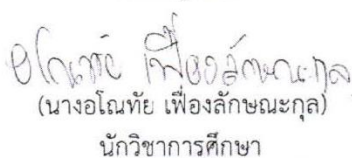 อโณทัย เฟื่องลักษณะกุล
(นางอโณทัย เฟื่องลักษณะกุล)
นักวิชาการศึกษา